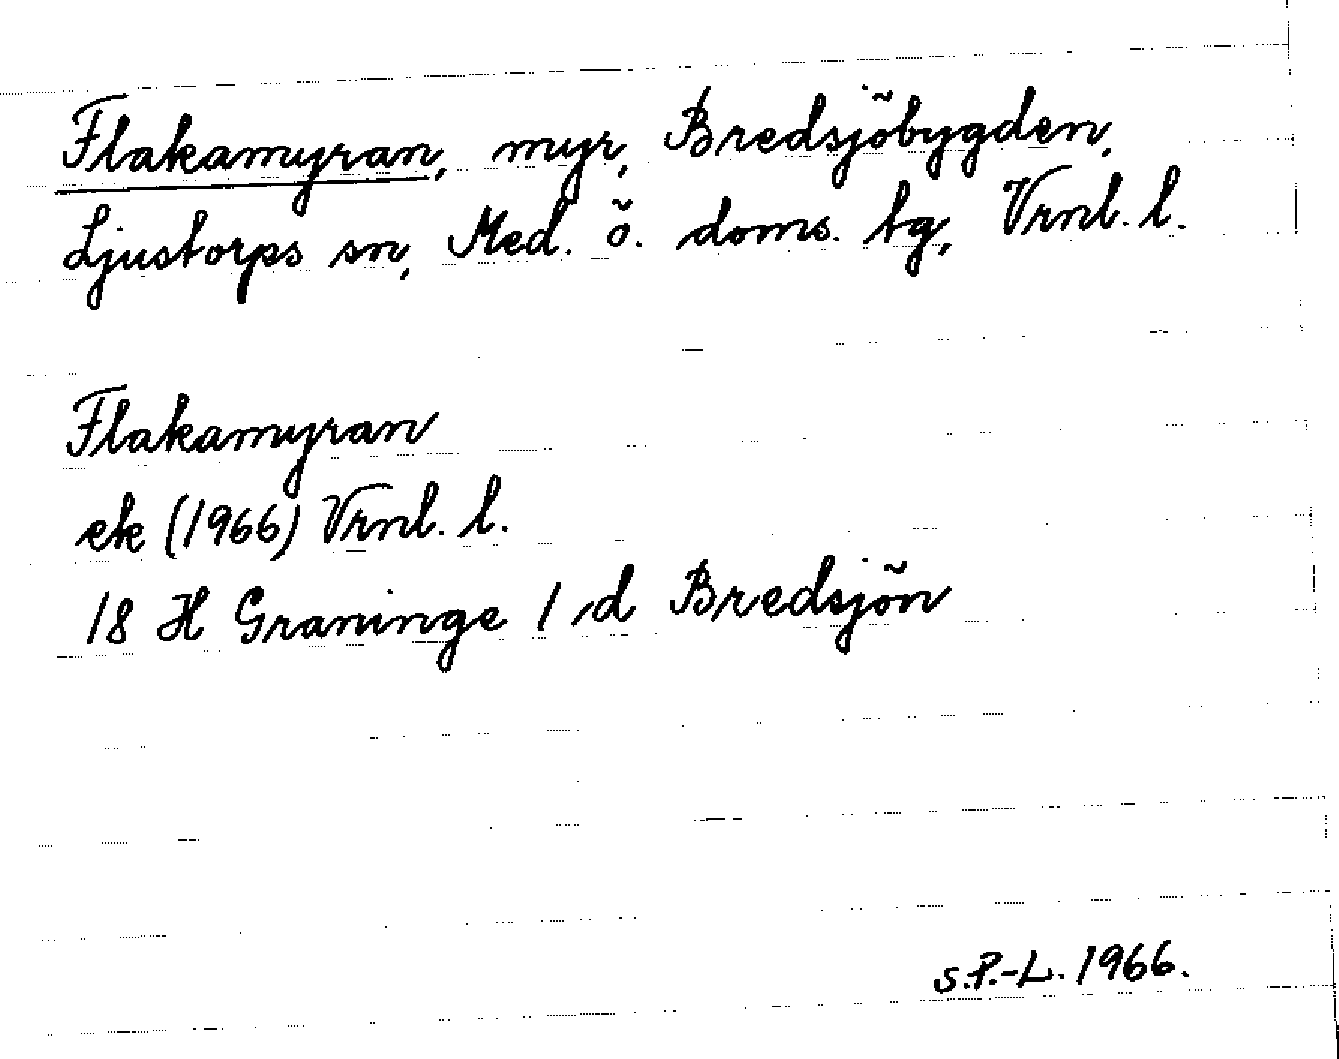 Flakamyran, myr, Bredsjöbygden,
Ljustorps sn, Med. ö. doms. tg, Vrnl. l.
Flakamyran
ek (1966) Vrnl. l.
18 H Graninge 1 d Bredsjön
S.P.-L. 1966.